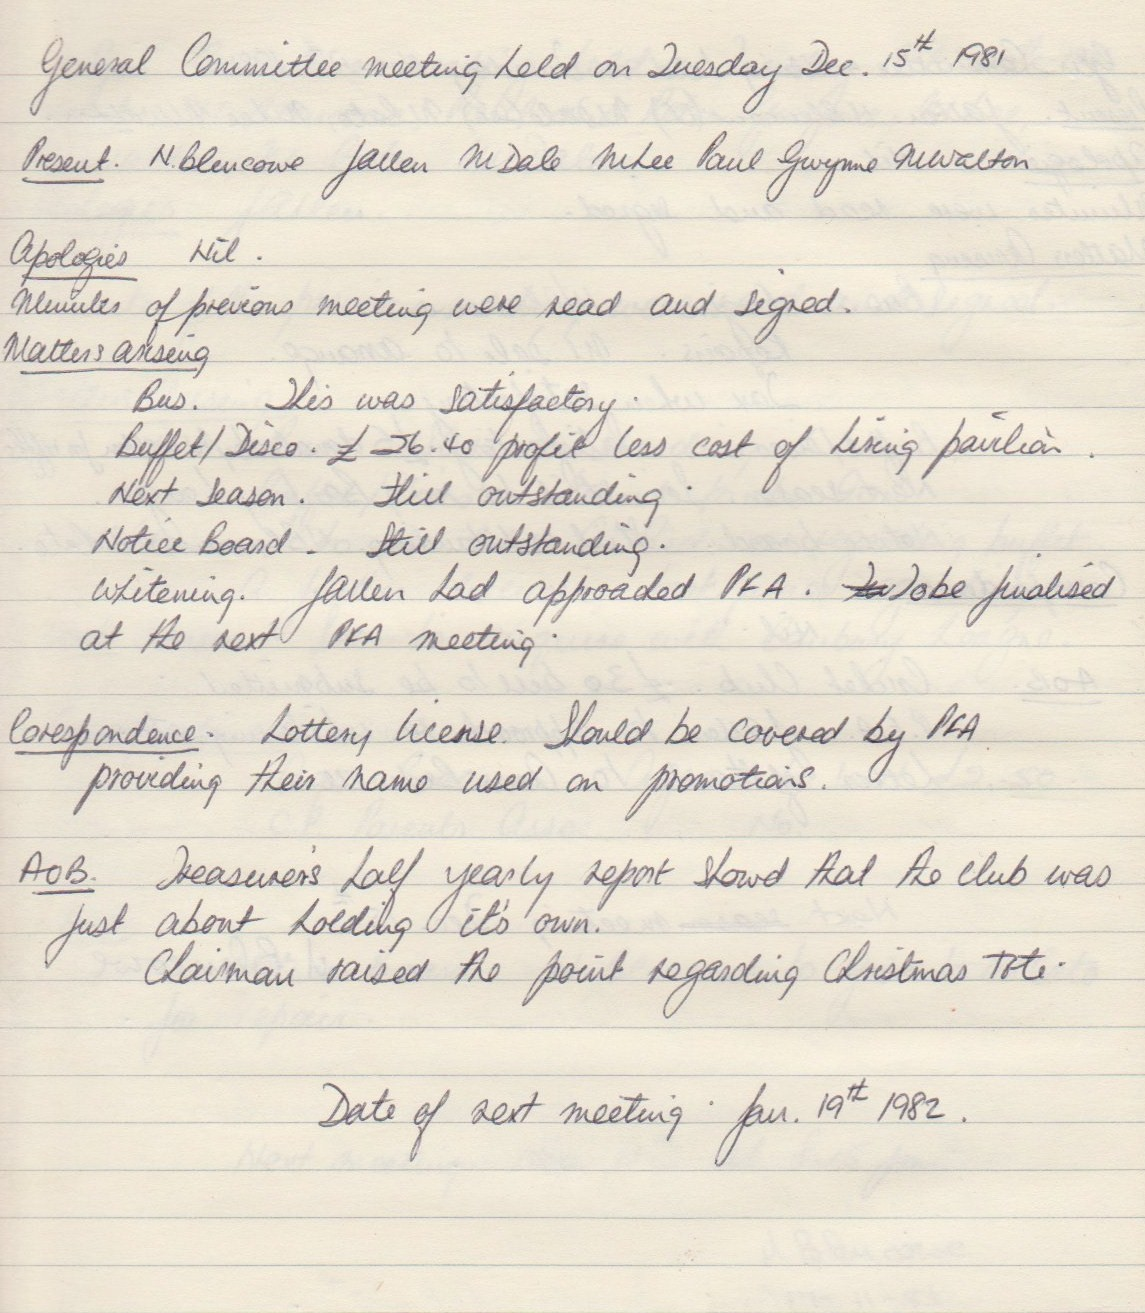 General Committee meeting held on Tuesday Dec. 15th 1981
Present. N. Blencowe J Allen M Dale M Lee Paul Gwynne M Walton
Apologies Nil.
Minutes of previous meeting were read and signed.
Matters arising
Bus. This was satisfactory.
Buffet/Disco. £ 26.40 profit less cost of hiring pavilion.
Next Season. Still outstanding.
Notice Board - Still outstanding.
Whitening. J Allen had approached PFA. To be finalised
at the next PFA meeting.
Corespondence. Lottery license. Should be covered by PFA
providing their name used on promotions.
AOB. Treasurers half yearly report showd that the club was
just about holding it's own.
Chairman raised the point regarding Christmas Tote.
Date of next meeting. Jan. 19th 1982.